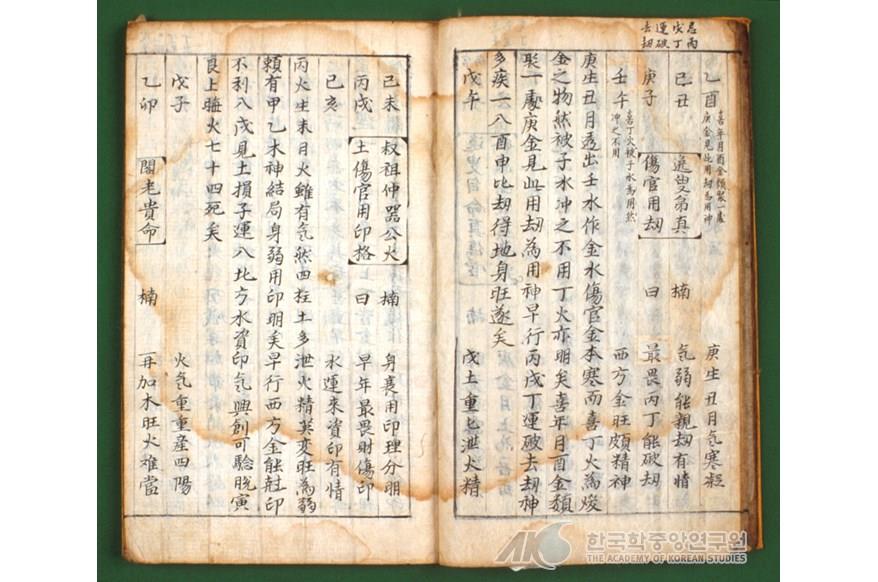 忌丙
戊丁
運破
去劫
乙酉 喜年月酉金類聚一處
庚金見比用劫為用神
庚生丑月气寒凝
己丑 逸叟弟真 楠 气弱能親劫有情
庚子 傷官用劫 曰 最畏丙丁能破劫
壬午 喜丁火被子水為用然
冲之不用
西方金旺頗精神
庚生丑月透出壬水作金水傷官金本寒而喜丁火為煖
金之物然被子水冲之不用丁火亦明矣喜年月酉金類
聚一處庚金見此用劫為用神早行丙戌丁運破去劫神
多疾一八酉申比劫得地身旺遂矣
戊午 戊土重匕泄火精
己未 叔祖仲器公火 楠 身衰用印理分明
丙戌 土傷官用印格 曰 早年最畏財傷印
己亥 水運来資印有情
丙火生未月火雖有气然四柱土多泄火精英变旺為弱
賴有甲乙木神結局身弱用印明矣早行西方金能尅印
不利八戊見土損子運八北方水資印气興創可騐脫寅
艮上晦火七十四死矣
戊子 火气重重產四陽
乙卯 閣老貴命 楠 再加木旺火难當
AKS 한국학중앙연구원
THE ACADEMY OF KOREAN STUDIES